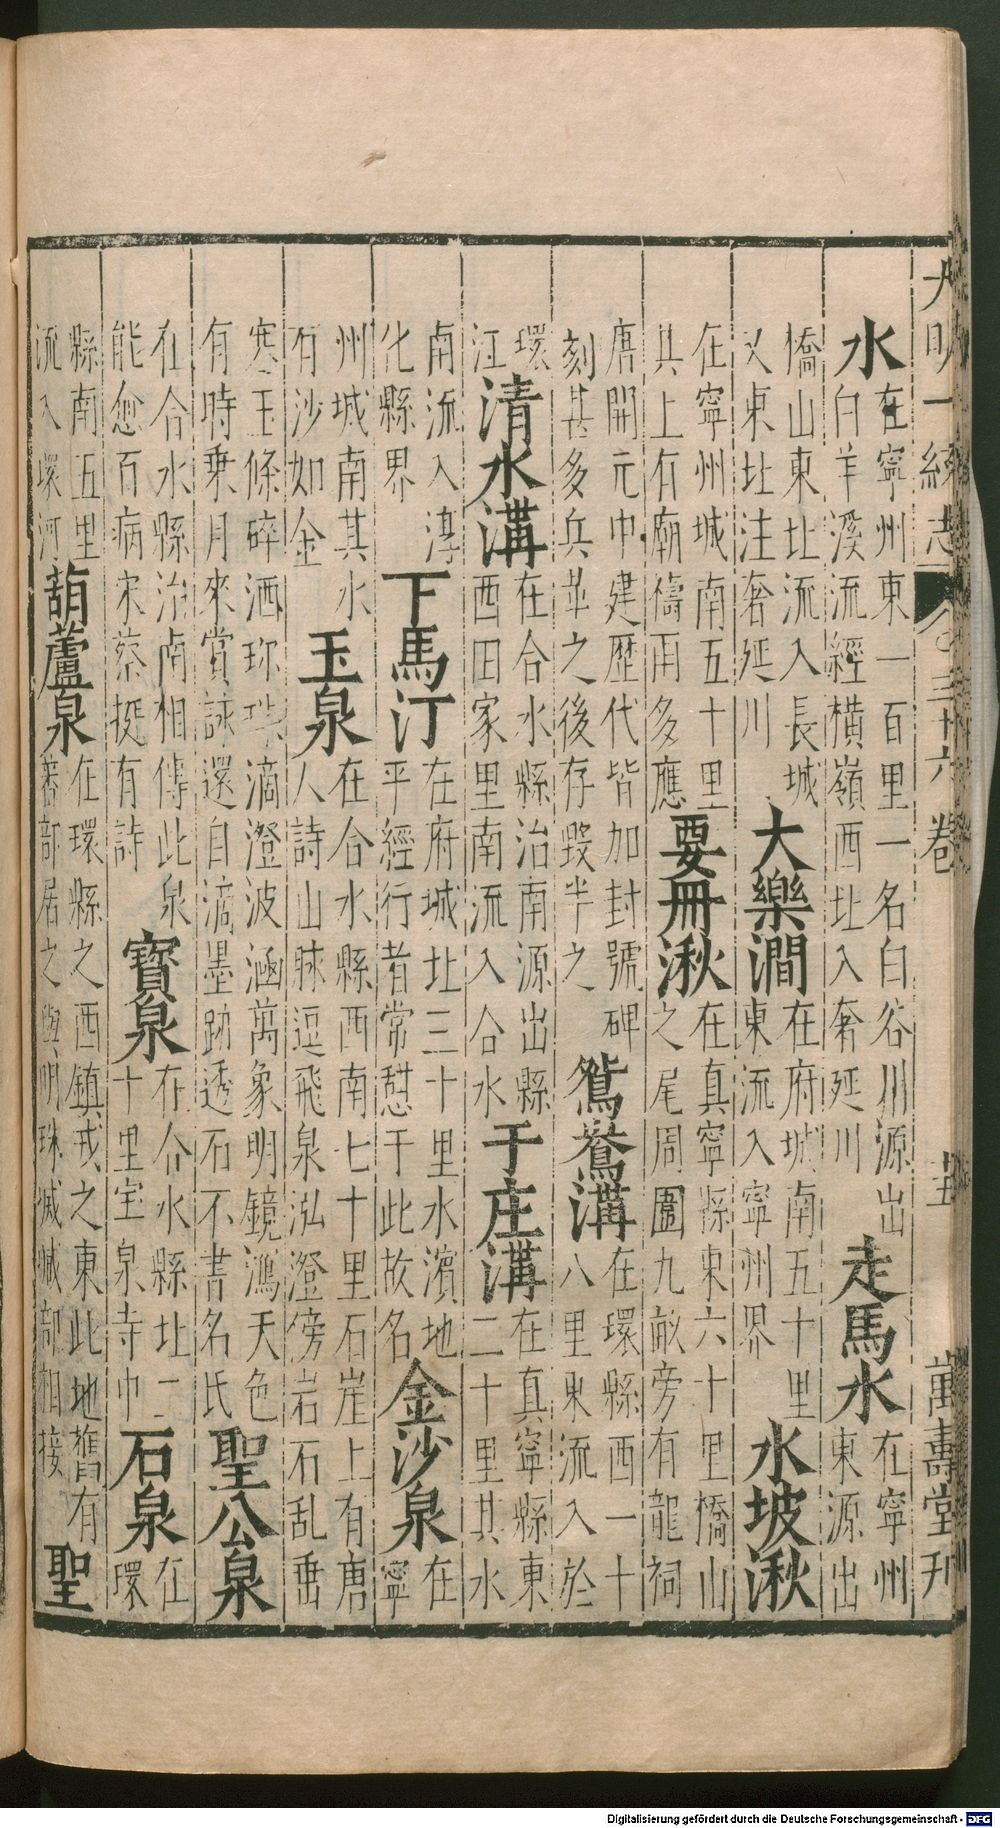 大明一統志 卷之三十六卷 五 萬壽堂刊
水 在寧州東一百里一名白谷川源出
白羊溪流經橫嶺西北入奢延川
走馬水 在寧州
東源出
橋山東北流入長城
又東北注奢延川
大樂澗 在府城南五十里
東流入寧州界
水坡湫
在寧州城南五十里
其上有廟禱雨多應
要冊湫 在真寧縣東六十里橋山
之尾周圍九畝旁有龍祠
唐開元中建歷代皆加封號碑
刻甚多兵革之後存毀半之
鴛鴦溝 在環縣西一十
八里東流入於
環
江
清水溝 在合水縣治南源出縣
西田家里南流入合水
于庄溝 在真寧縣東
二十里其水
南流入淳
化縣界
下馬汀 在府城北三十里水濱地
平經行者常憩于此故名
金沙泉 在
寧
州城南其水
有沙如金
玉泉 在合水縣西南七十里石崖上有唐
人詩山脉逗飛泉泓澄傍岩石乱垂
寒玉條碎洒珎珠滴澄波涵萬象明鏡瀉天色
有時乗月來賞詠還自滴墨跡透石不書名氏
聖公泉
在合水縣治南相傳此泉
能愈百病宋蔡挺有詩
寶泉 在合水縣北二
十里宝泉寺中
石泉 在
環
縣南五里
流入環河
葫蘆泉 在環縣之西鎮戎之東此地舊有
蕃部居之與明珠滅臧部相接
聖
Digitalisierung gefördert durch die Deutsche Forschungsgemeinschaft - DFG